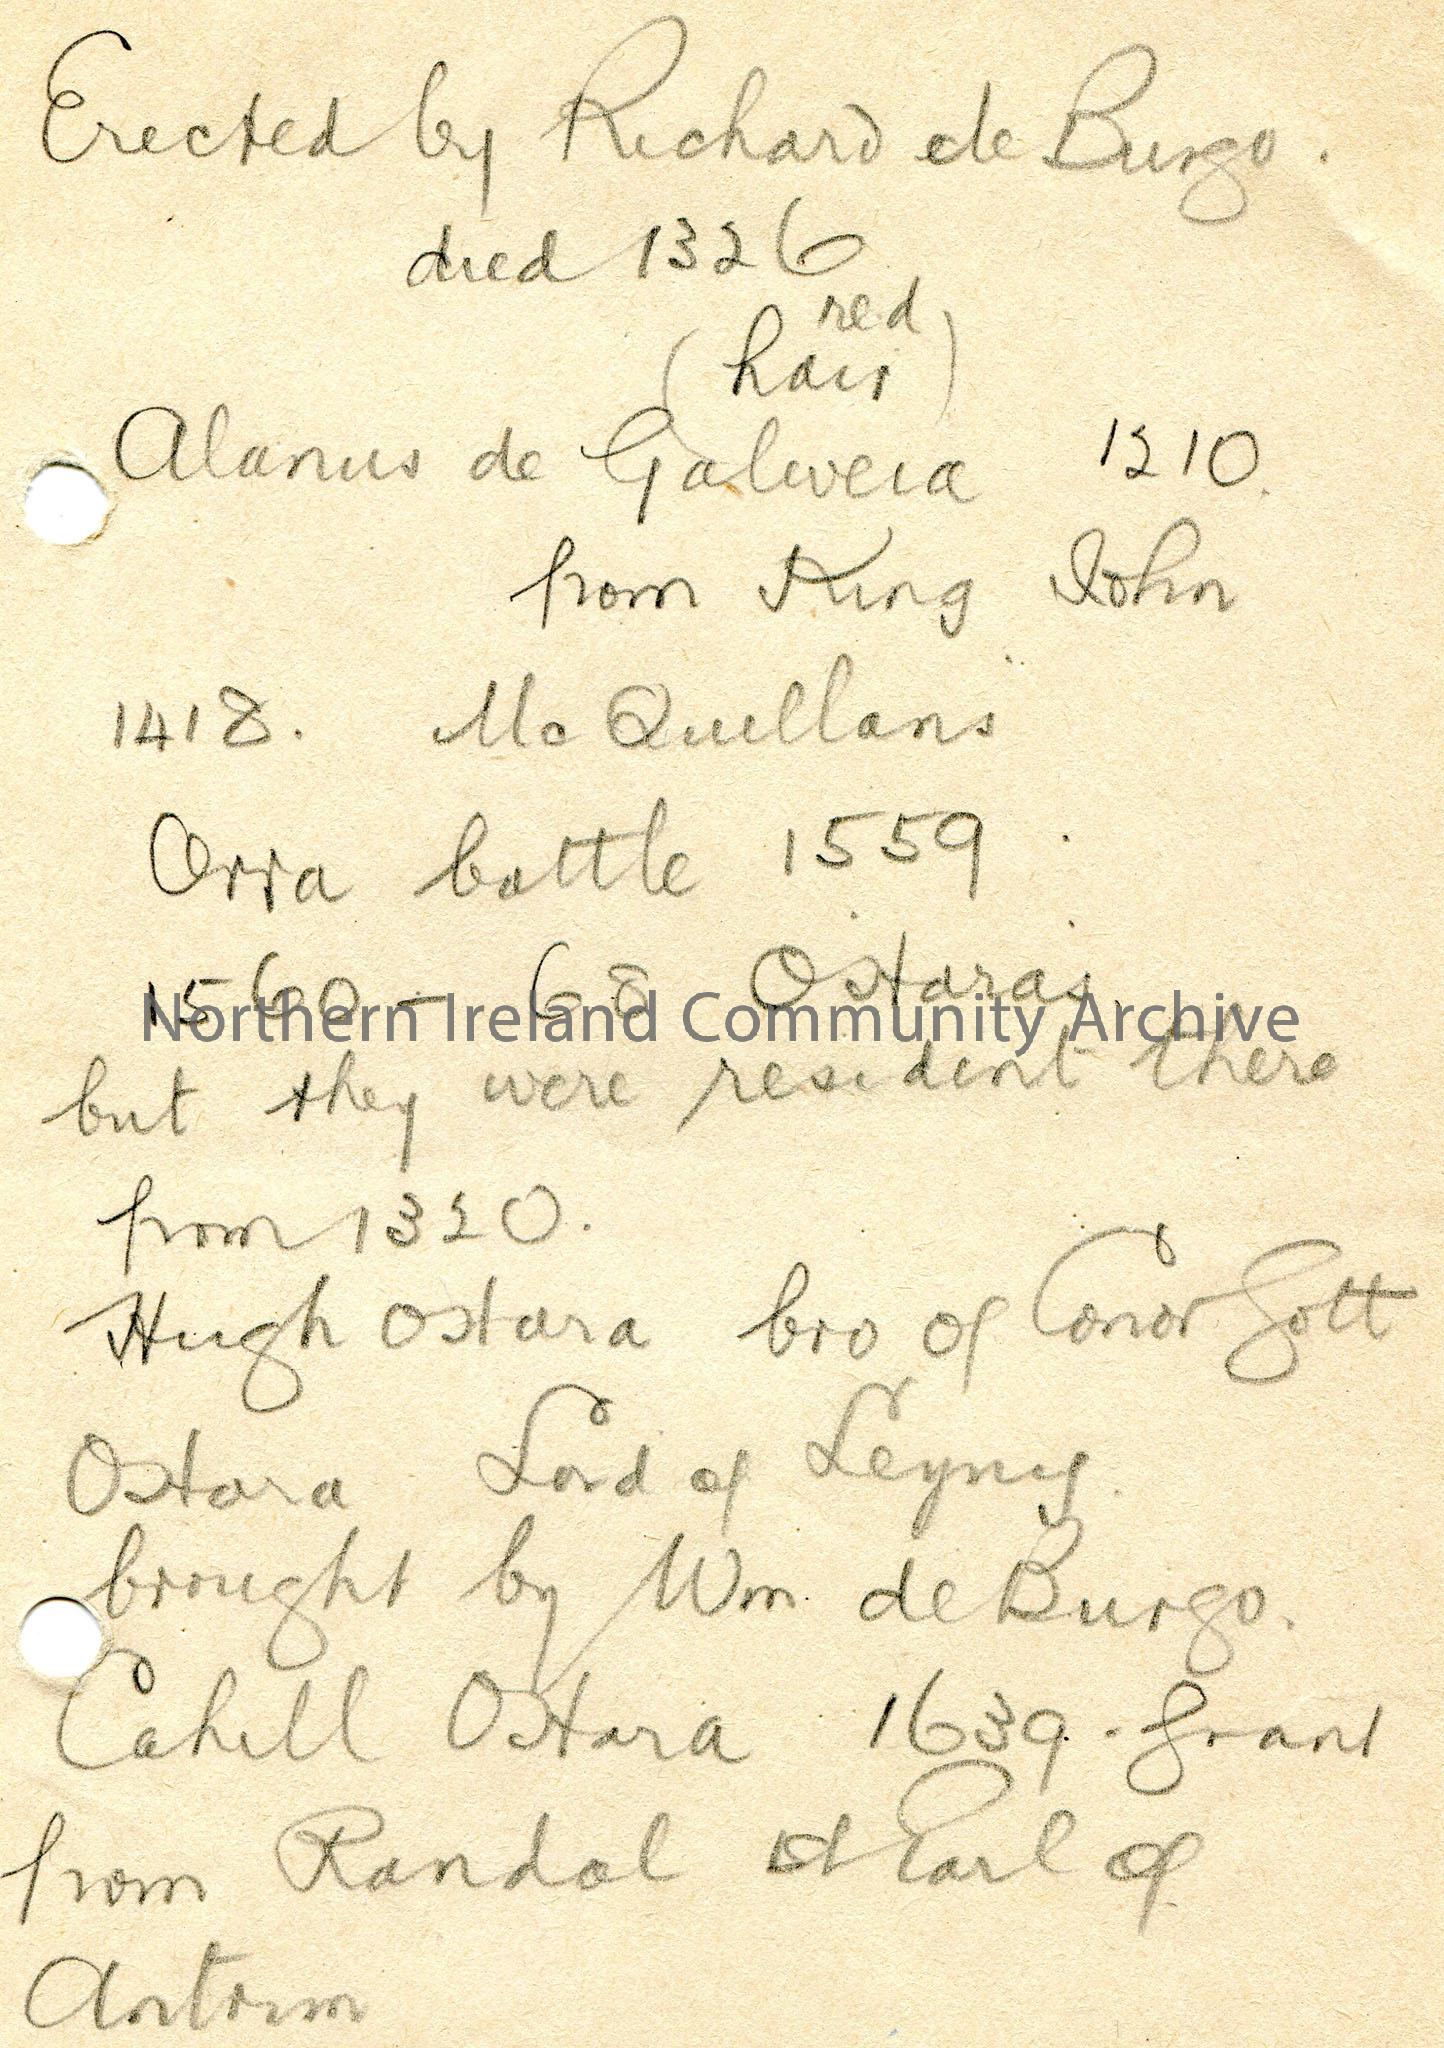 Erected by Richard de Burgo.
died 1326
red
(hair)
Alanus de Galweia 1210.
from King John
1418. McQuillans
Orra battle 1559
1560 - 68 OHaras,
Northern Ireland Community Archive
but they were resident there
from 1320.
Hugh OHara bro of Conor Gott
OHara Lord of Leyny.
brought by Wm. de Burgo.
Cahill OHara 1639. Grant
from Randal Earl of
Antrim